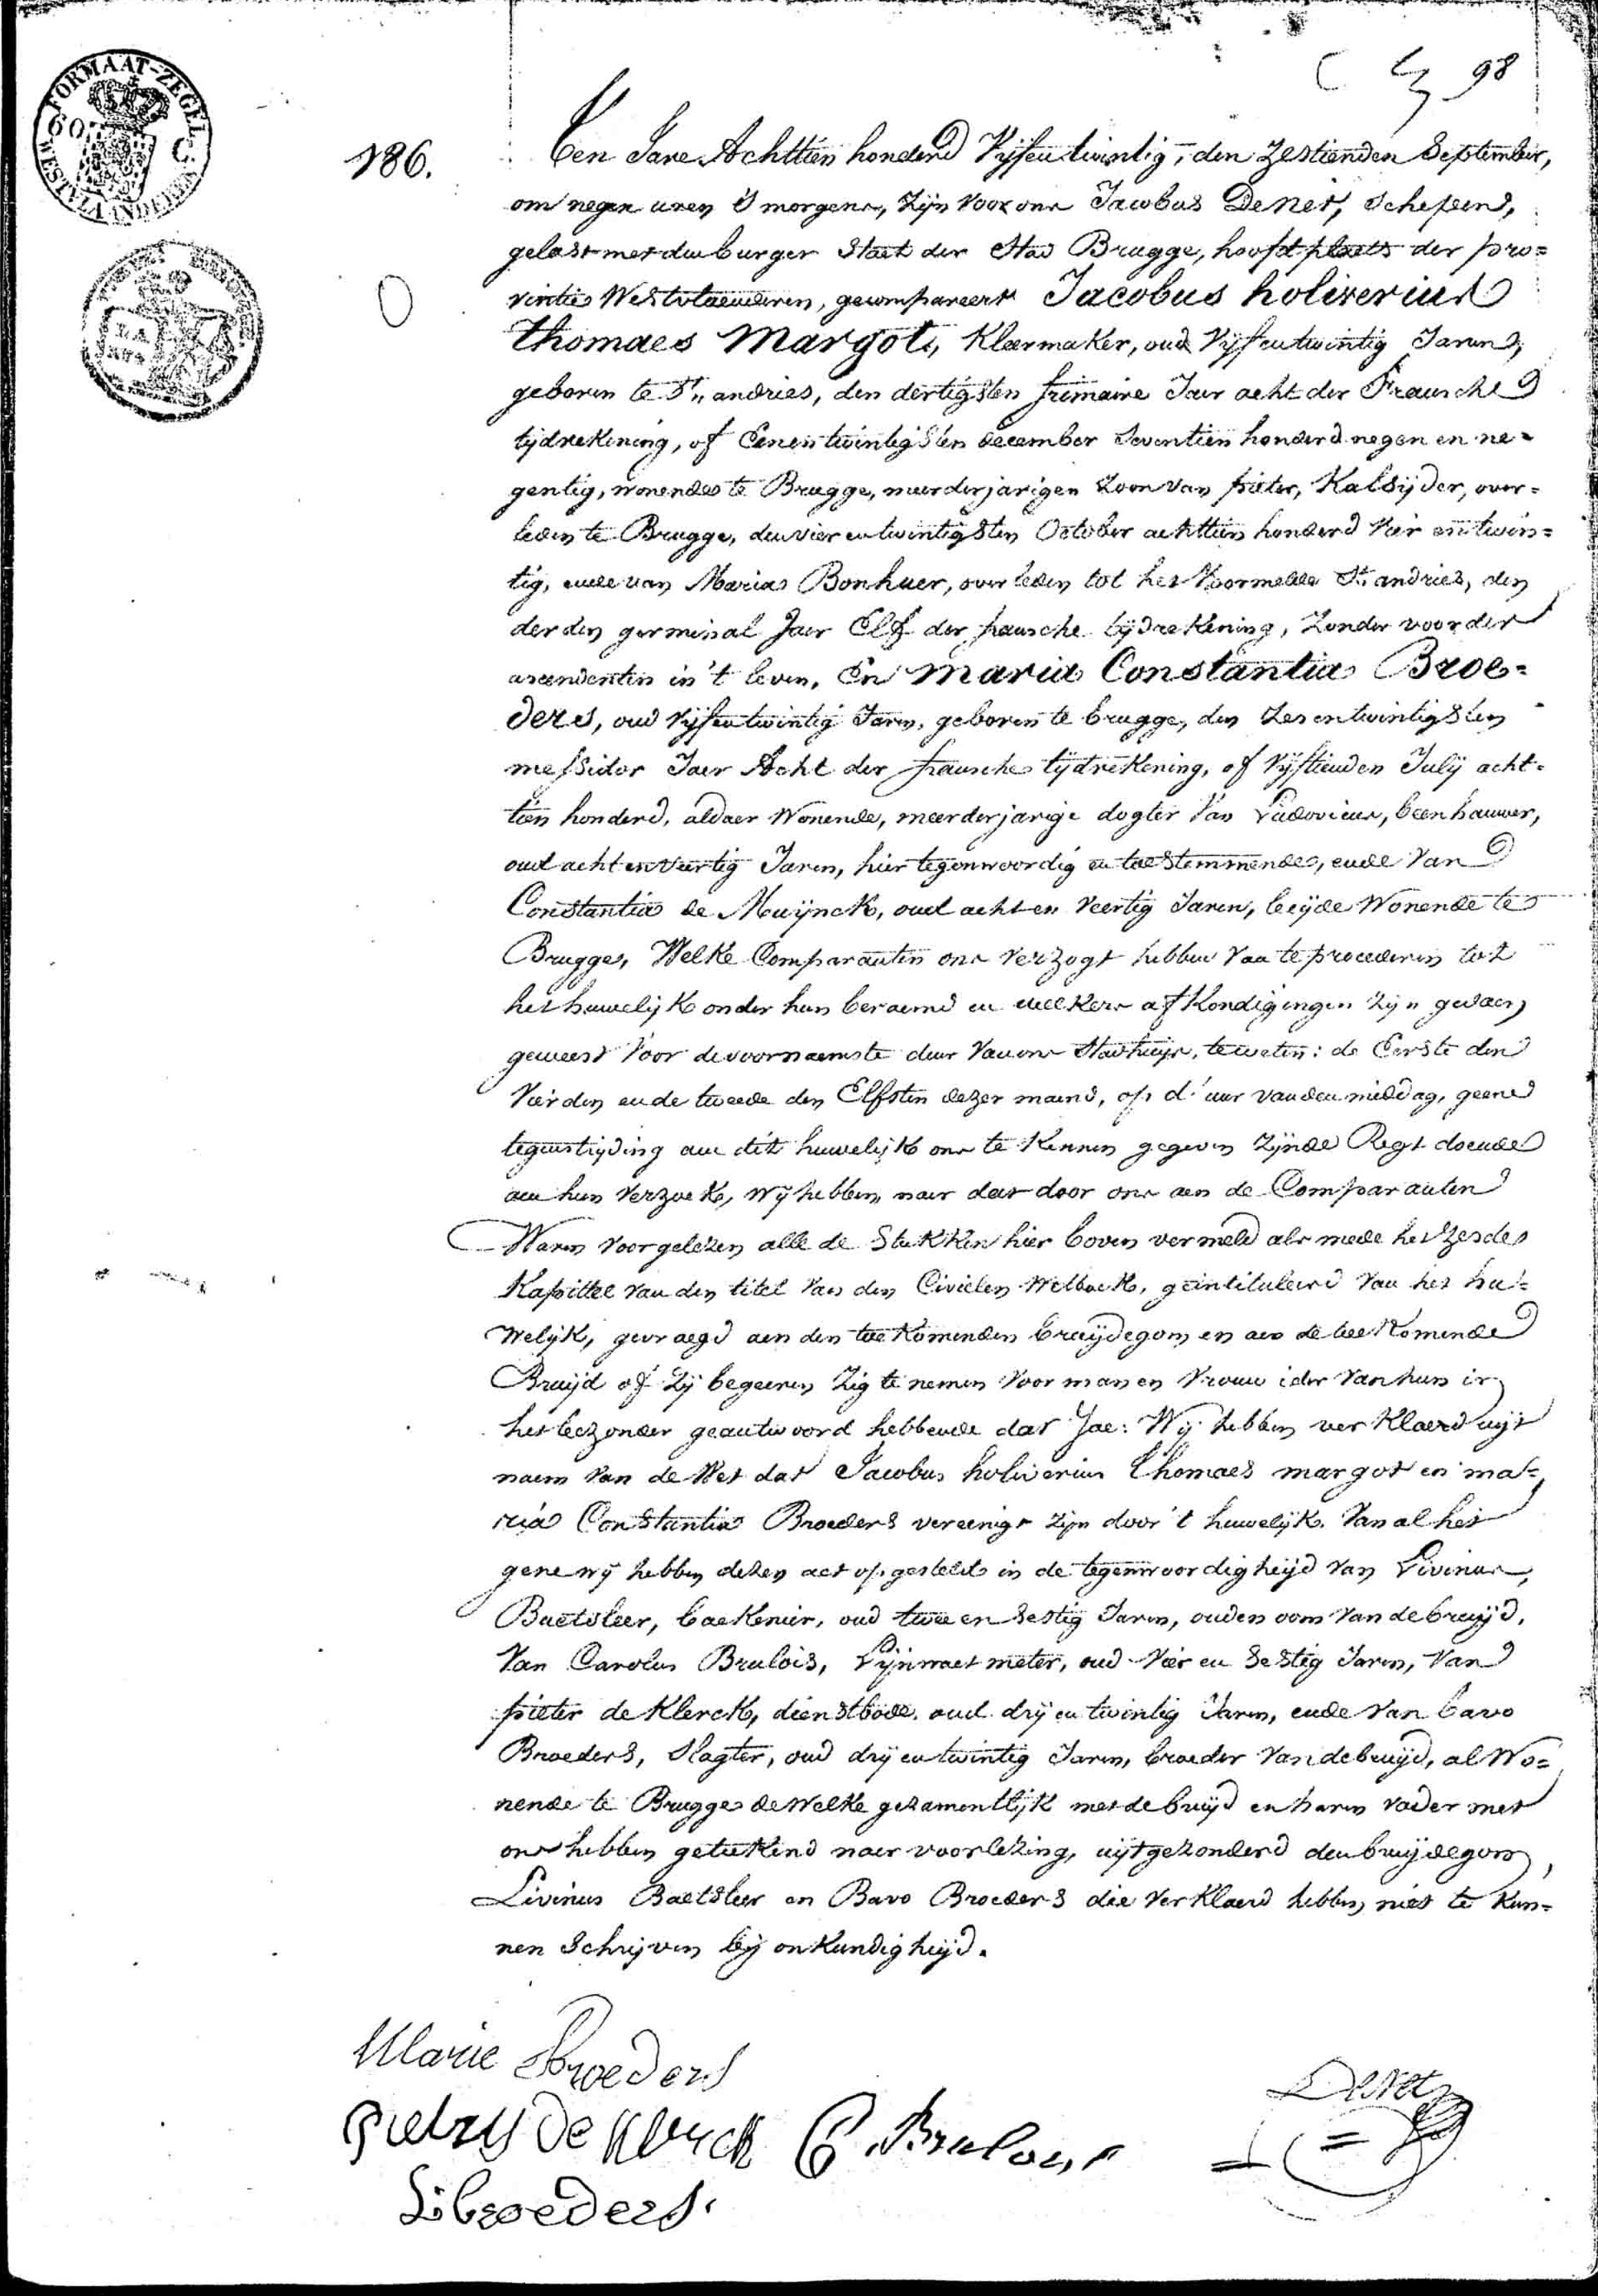 98
FORMAAT-ZEGEL
60 C.
WESTVLAANDEREN
186.
Een Jare Achttien honderd Vijfentwintig, den Zestienden September,
om negen uren 's morgens, zijn voor ons Jacobus Denet, Schepen,
gelast met den burger Staet der Stad Brugge, hoofdplaets der pro=
vintie Westvlaenderen, gecompareert Jacobus holiverius
Thomaes Margot, Kleermaker, oud Vijfentwintig Jaren,
geboren te St. andries, den dertigsten frimaire Jaer acht der Fransche
tijdrekening, of Eenentwintigsten december Seventien honderd negen en ne=
gentig, wonende te Brugge, meerderjarigen Zoon van pieter, Kalsijder, over=
leden te Brugge, den vierentwintigsten October achttien honderd Vier en twin=
tig, ende van Maria Bonhuer, overleden tot het Voormelde St. andries, den
derden germinal Jaer Elf der fransche tijdrekening, Zonder voorder
ascendenten in 't leven, En Maria Constantia Broe=
ders, oud Vijfentwintig Jaren, geboren te brugge, den Zesentwintigsten
messidor Jaer Acht der fransche tijdrekening, of Vijftienden Julij acht=
tien honderd, aldaer Wonende, meerderjarige dogter Van Ludovicus, beenhauwer,
oud acht en veertig Jaren, hier tegenwoordig en toestemmende, ende Van
Constantia de Muijnck, oud acht en Veertig Jaren, beijde Wonende te
Brugge, Welke Comparanten ons verzogt hebben van te procederen tot
het huwelijk onder hun beraemd en welkers afkondigingen zijn gedaen
geweest Voor de voornaemste deur van ons Stadhuijs, te weten: de Eerste den
Vierden en de tweede den Elfsten dezer maend, op d'uur van den middag, geene
tegenstrijding aen dit huwelijk ons te Kennen gegeven Zijnde Regt doende
aen hun Verzoek, Wij hebben, naer dat door ons aen de Comparanten
Waren voorgelezen alle de Stukken hier boven vermeld als mede het Zesde
Kapittel van den titel Van den Civielen Wetboek, geintituleerd Van het hu=
Welijk, gevraegd aen den toekomenden bruijdegom en aen de toekomende
Bruijd of Zij begeeren Zig te nemen Voor man en Vrouw ider Van hun in
het bezonder geantwoord hebbende dat Jae: Wij hebben verklaerd uijt
naem Van de Wet dat Jacobus holiverius Thomaes margot en ma=
ria Constantia Broeders vereenigt zijn door 't huwelijk. Van al het
gene wij hebben dezen act opgesteld in de tegenwoordigheijd Van Livinus
Baetsleer, oud twee en Sestig Jaren, ouden oom Van de bruijd,
Van Carolus Brulois, Lijnwaetmeter, oud Vier en Sestig Jaren, Van
pieter de Klerck, dienstbode, oud drij en twintig Jaren, ende Van bavo
Broeders, Slagter, oud drij en twintig Jaren, broeder Van de bruijd, al Wo=
nende te Brugge de Welke gezamentlijk met de bruijd en haren vader met
ons hebben geteekend naer voorlezing, uijtgezonderd den bruijdegom,
Livinus Baetsleer en Bavo Broeders die Verklaerd hebben, niet te Kun=
nen Schrijven bij onkundigheijd.
Marie Broeders
Denet
de Klerck C. Brulois
L: broeders.